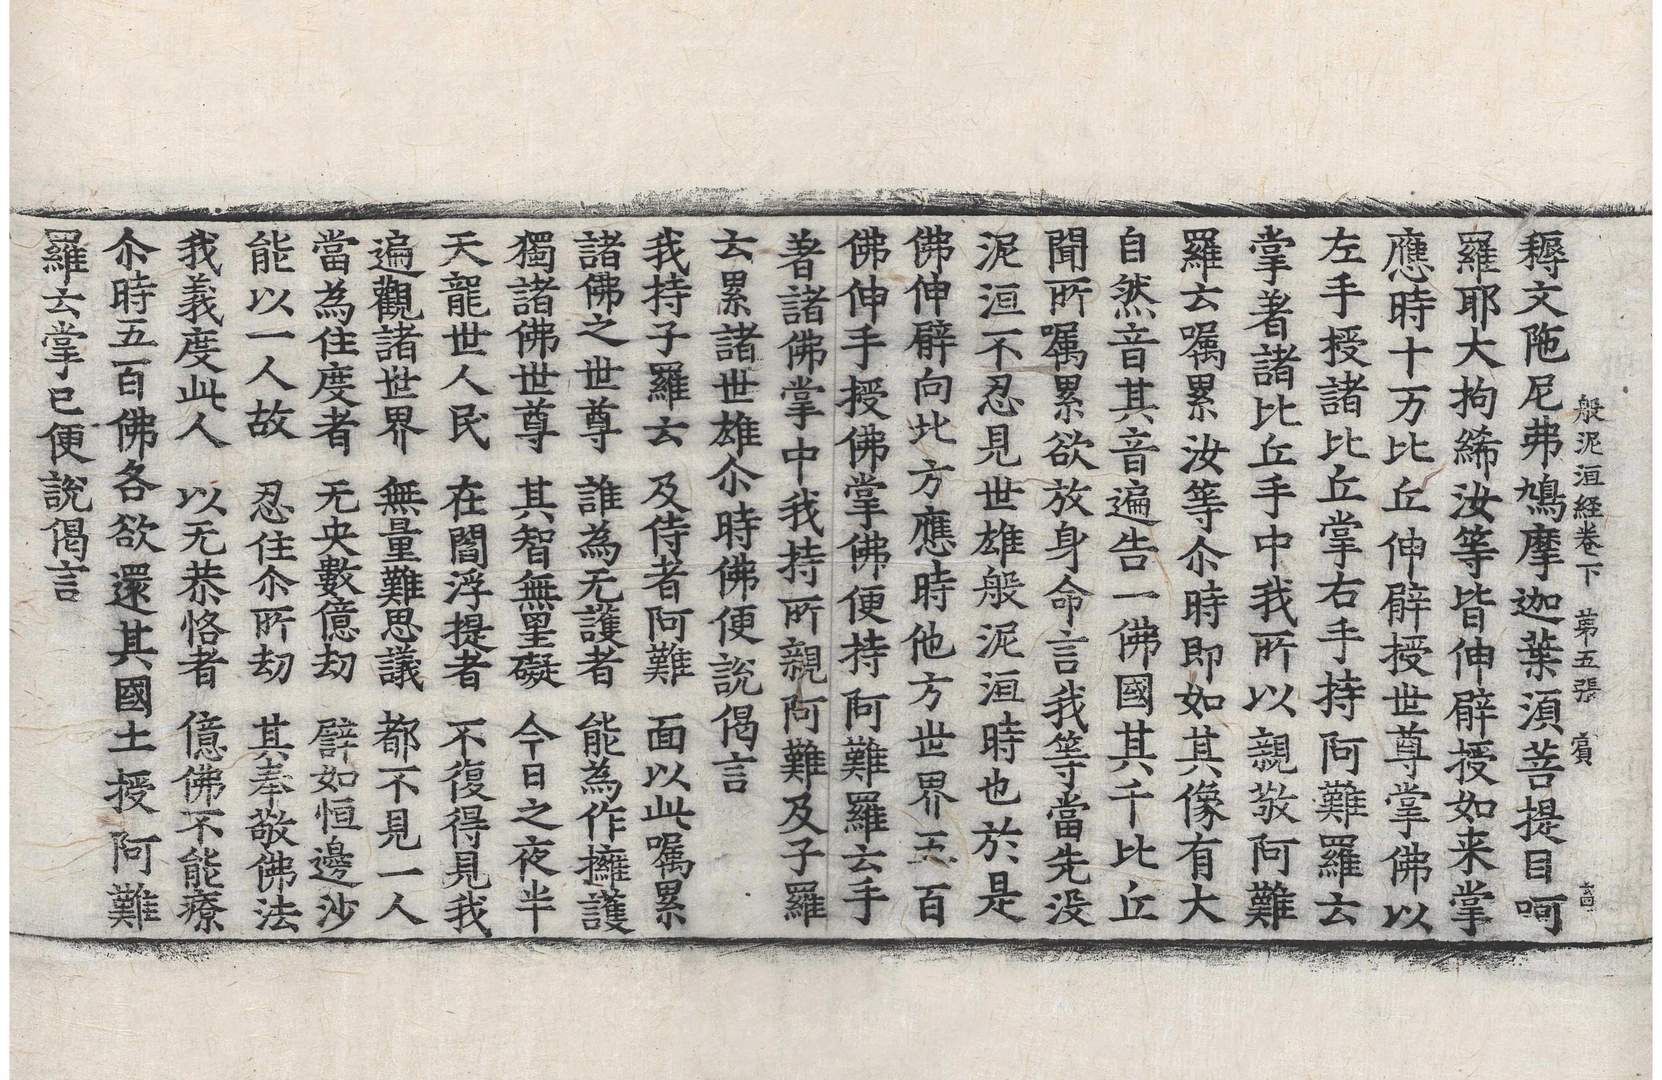 般泥洹経卷下 第五張 賔
耨文陁尼弗鳩摩迦葉湏菩提目呵
羅耶大拘絺汝等皆伸臂授如来掌
應時十万比丘伸臂授世尊掌佛以
左手授諸比丘掌右手持阿難羅云
掌著諸比丘手中我所以親敬阿難
羅云嘱累汝等尒時即如其像有大
自然音其音遍告一佛國其千比丘
聞所嘱累欲放身命言我等當先没
泥洹不忍見世雄般泥洹時也於是
佛伸臂向北方應時他方世界五百
佛伸手授佛掌佛便持阿難羅云手
著諸佛掌中我持所親阿難及子羅
云累諸世雄尒時佛便說偈言
我持子羅云 及侍者阿難 面以此嘱累
諸佛之世尊 誰為无護者 能為作擁護
獨諸佛世尊 其智無罣礙 今日之夜半
天龍世人民 在閻浮提者 不復得見我
遍觀諸世界 無量難思議 都不見一人
當為住度者 无央數億劫 譬如恒邊沙
能以一人故 忍住尒所劫 其奉敬佛法
我義度此人 以无恭恪者 億佛不能療
尒時五百佛各欲還其國土授阿難
羅云掌已便說偈言